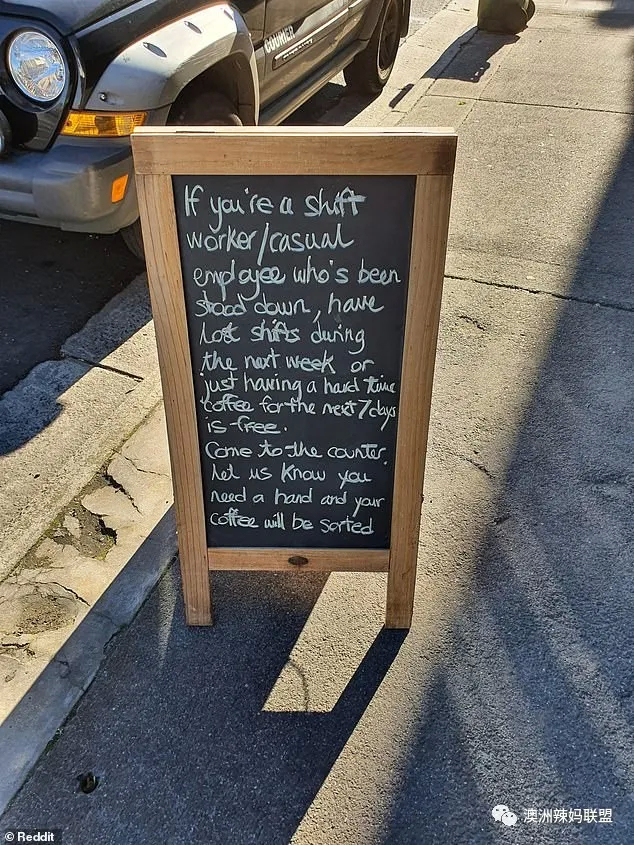 COURIER
If you're a shift
worker/casual
employee who's been
stood down, have
lost shifts during
the next week or
just having a hard time
coffee for the next 7 days
is free.
Come to the counter,
let us know you
need a hand and your
coffee will be sorted
澳洲辣妈联盟
© Reddit